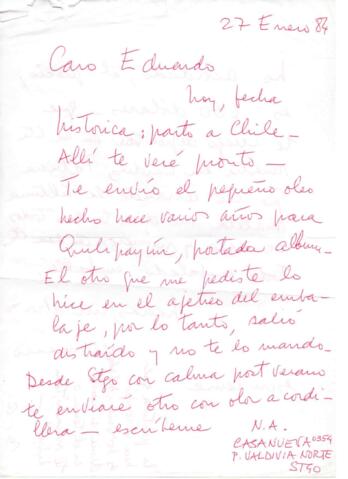 27 Enero 84
Caro Eduardo
hoy, fecha
historica: parto a Chile –
Allí te veré pronto –
Te envío el pequeño oleo
hecho hace varios años para
Quilipayún, portada album –
El otro que me pediste lo
hice en el ajetreo del emba-
laje, por lo tanto, salió
distraído y no te lo mando –
Desde Stgo con calma post verano
te enviaré otro con olor a cordi-
llera – escríbeme N.A.
CASANUEVA 0354
P. VALDIVIA NORTE
STGO